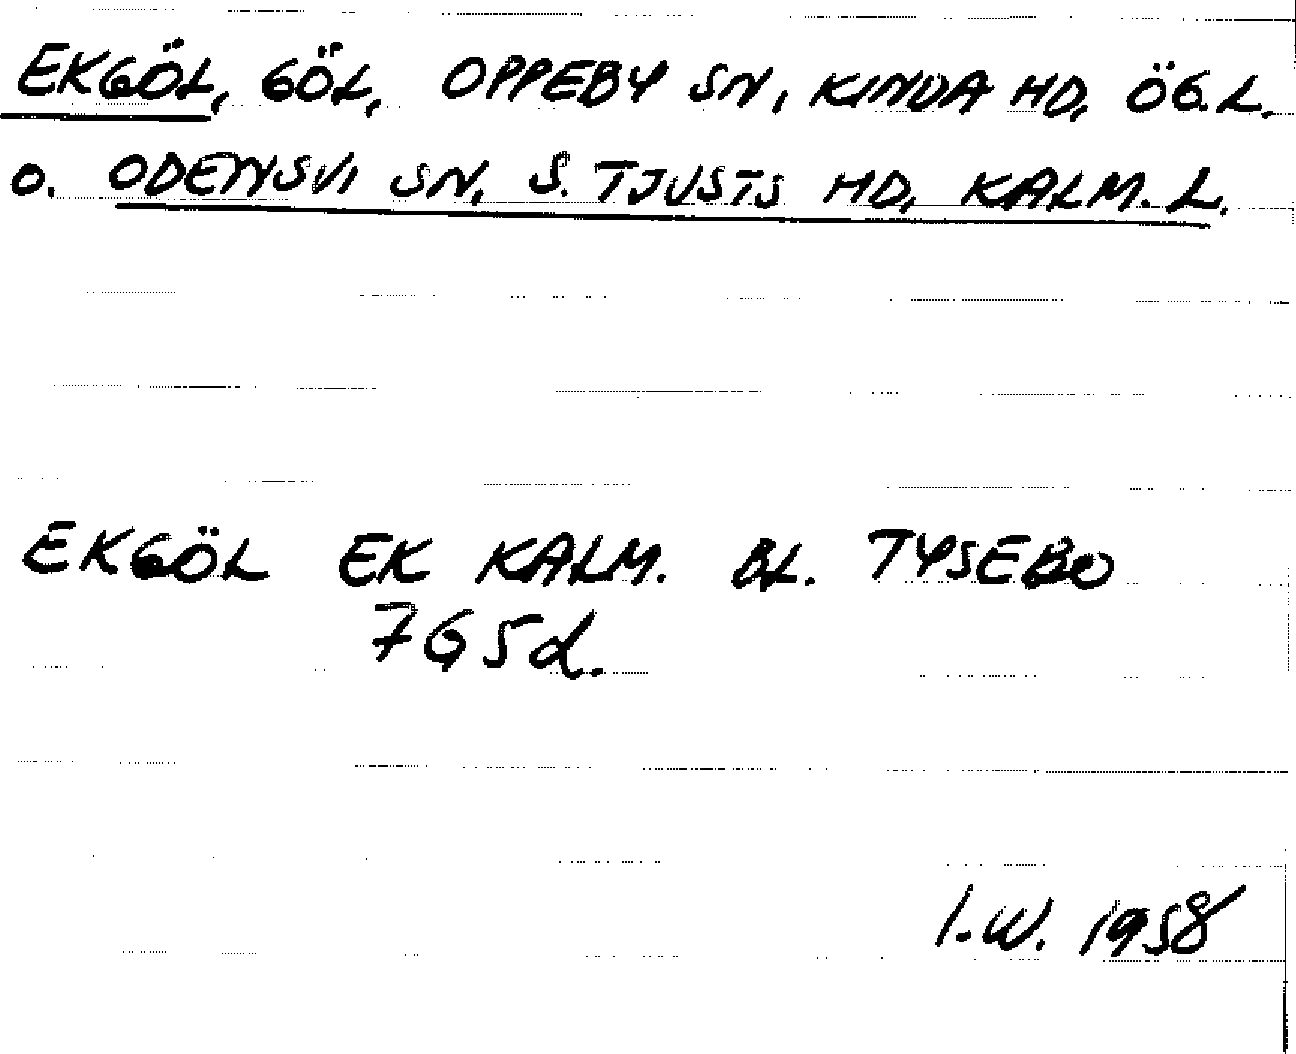 EKGÖL, GÖL, OPPEBY SN, KINDA HD, ÖG.L.
O. ODENSVI SN, S. TJUSTS HD, KALM.L.
EKGÖL EK KALM. BL. TYSEBO
7G5d.
I.W. 1958